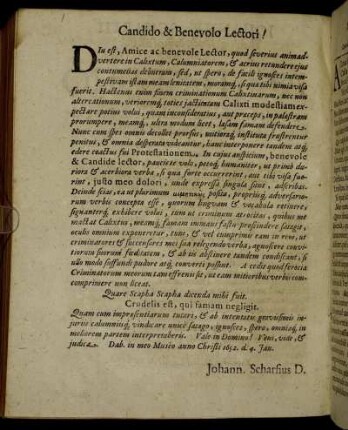 Candido & Benevolo Lectori!
Diu est, Amice ac benevole Lector, quod severius animad-
vertere in Calixtum, Calumniatorem, & acrius retundere ejus
contumelias debueram, sed, ut spero, de facili ignosces intem-
pestivæ istam meæ lenitatem, moramq́, si qua tibi nimia visa
fuerit. Hactenus enim finem criminationum Calixtinarum, nec non
altercationum, verioremq́, toties jactitatam Calixti modestiam ex-
pectare potius volui, quam inconsideratus, aut præceps, in palæstram
prorumpere, mutuaq́, ultra modum licet, læsam famam defendere.
Nunc cum spes omnis decollet prorsus, institutq́ frustrentur
penitus, & omnia desperata videantur, hanc interponere tandem atq́
edere coactus fui Protestationem, in cujus antitestimon, benevole
& Candide lector, pauciete volo, peroq́ humaniter, ut primò de-
riora & acerbiora verba, si qua forte occurrerint, aut tibi visa fue-
rint, justo meo dolori, unde expressa singula sunt, adscribas.
Deinde scias, ea ut plurimum
rum verbis concepta esse, quorum linguam & vocabula retinere,
signanterq́ exhibere volui, tum ut criminum atrocitas, quibus me
mactat Calixtus, meamq́ famam immani fastu proscindere satagit,
oculo omnium exponeretur, tunc, & vel
criminatores & successores mei sua relegendo verba, agnoscere convi-
tiorum suorum fœditatem, & ab iis abstinere tandem condiscant, si
ullo modo suffundi pudore atq́ converti possint. A cedis quod ferocia
Criminatorum meorum tam effrenis sit, ut eam mitioribus verbis com-
comprimere non liceat.
Quare Scapha Scapha dicenda mihi fuit.
Crudelis est, qui famam negligit.
Quam cum impræsentiarum tutari, & ab intentatis gravissimis in-
juriis calumniisq́, vindicare unicè satago, ignosces, spero, omniaq́, in
meliorem partem interpretaberis. Vale in Domino! Veni, vide, &
judica. Dab. in meo Musæo anno Christi 1652. d. 4. Jan.
Johann. Scharfius D.